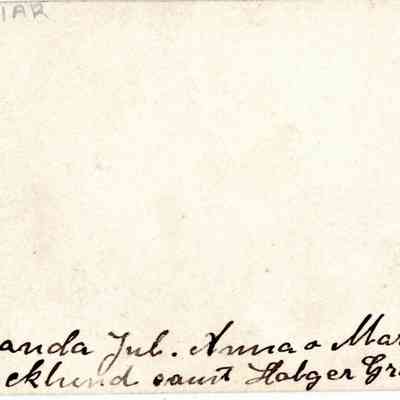 IAR
anda Jul. Anna o Mar
cklund samt Holger Gr